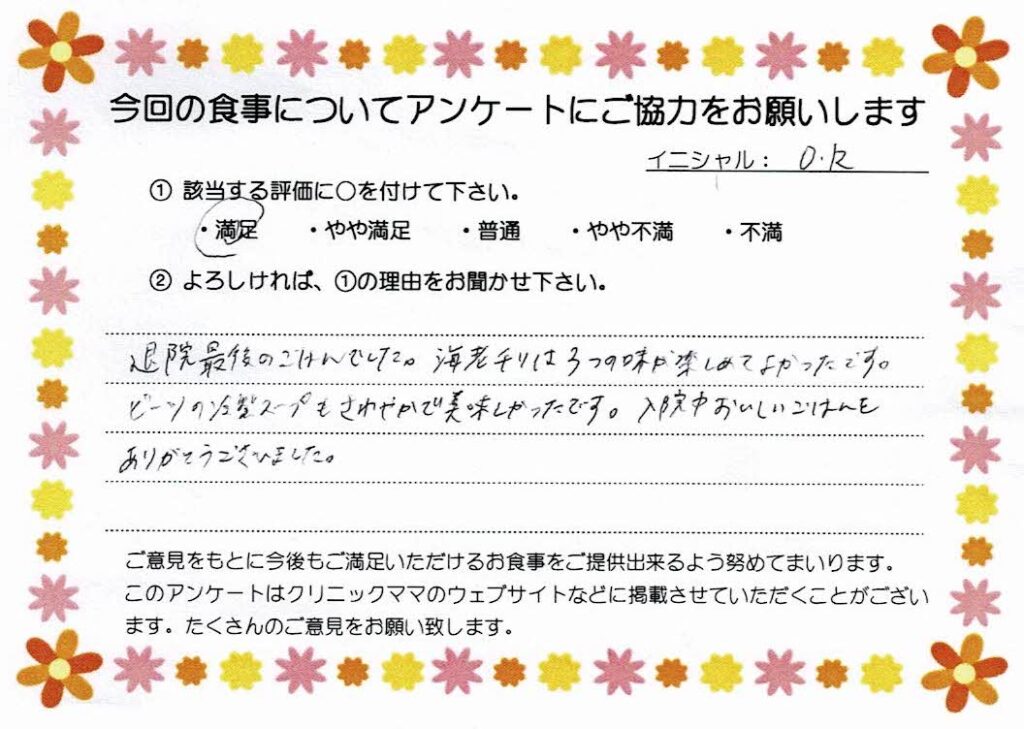 今回の食事についてアンケートにご協力をお願いします
イニシャル： O.K
① 該当する評価に○を付けて下さい。
・満足 ・やや満足 ・普通 ・やや不満 ・不満
② よろしければ、①の理由をお聞かせ下さい。
退院最後のごはんでした。海老チリは3つの味が楽しめてよかったです。
ビーツの冷製スープもさわやかで美味しかったです。入院中おいしいごはんを
ありがとうございました。
ご意見をもとに今後もご満足いただけるお食事をご提供出来るよう努めてまいります。
このアンケートはクリニックママのウェブサイトなどに掲載させていただくことがござい
ます。たくさんのご意見をお願い致します。